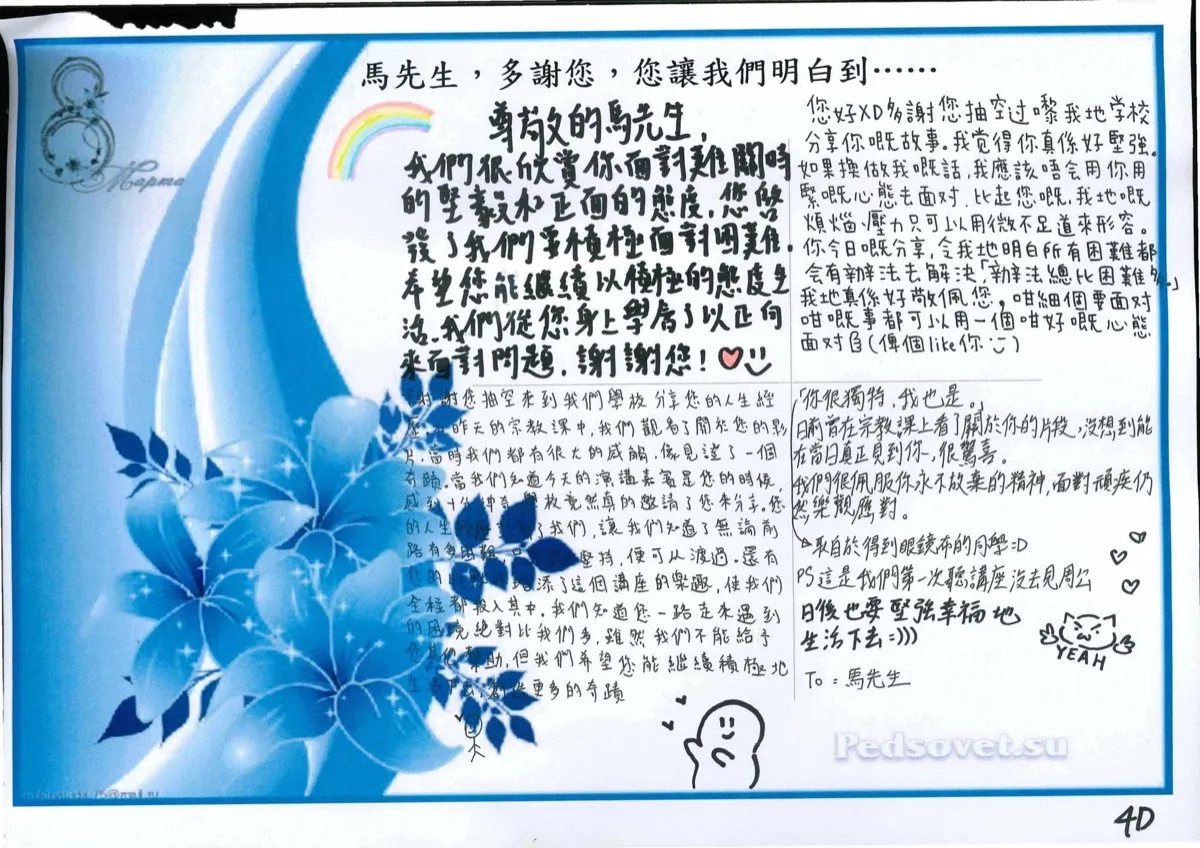 8 Марта
馬先生，多謝您，您讓我們明白到……
尊敬的馬先生，
我們很欣賞你面對難關時
的堅毅和正面的態度，您啓
發了我們要積極面對困難。
希望您能繼續以積極的態度生
活。我們從您身上學習了以正向
來面對問題，謝謝您！
您好XD多謝您抽空过嚟我地学校
分享你嘅故事。我覚得你真係好堅強。
如果換做我嘅話，我應該唔会用你用
緊嘅心態去面对，比起您嘅，我地嘅
煩惱、壓力只可以用微不足道來形容。
你今日嘅分享，令我地明白所有困難都
会有辦法去解決，「辦法總比困難多。」
我地真係好敬佩您，咁細個要面对
咁嘅事都可以用一個咁好嘅心態
面对自(俾個like你:)
謝謝您抽空來到我們學校分享您的人生經
昨天的宗教課中，我們觀看了關於您的影
片，當時我們都有很大的感觸，像見證了一個
奇蹟。當我們知道今天的演講嘉賓是您的時候，
感到十分神奇，學校竟然真的邀請了您來分享。您
的人生 了我們，讓我們知道了無論前
路有多困難， 堅持，便可以渡過。還有
您的 添了這個講座的樂趣，使我們
全程都投入其中。我們知道您一路走來遇到
的困境絕對比我們多，雖然我們不能給予
您其他幫助，但我們希望您能繼續積極地
生活下去，創造更多的奇蹟
「你很獨特，我也是。」
日前曾在宗教課上看了關於你的片段，沒想到能
在當日真正見到你，很驚喜。
我們很佩服你永不放棄的精神，面對頑疾仍
然樂觀應對。
取自於得到眼鏡布的同學:D
PS這是我們第一次聽講座沒去見周公
日後也要堅強幸福地
生活下去=)))
YEAH
To：馬先生
Pedsovet.su
4D